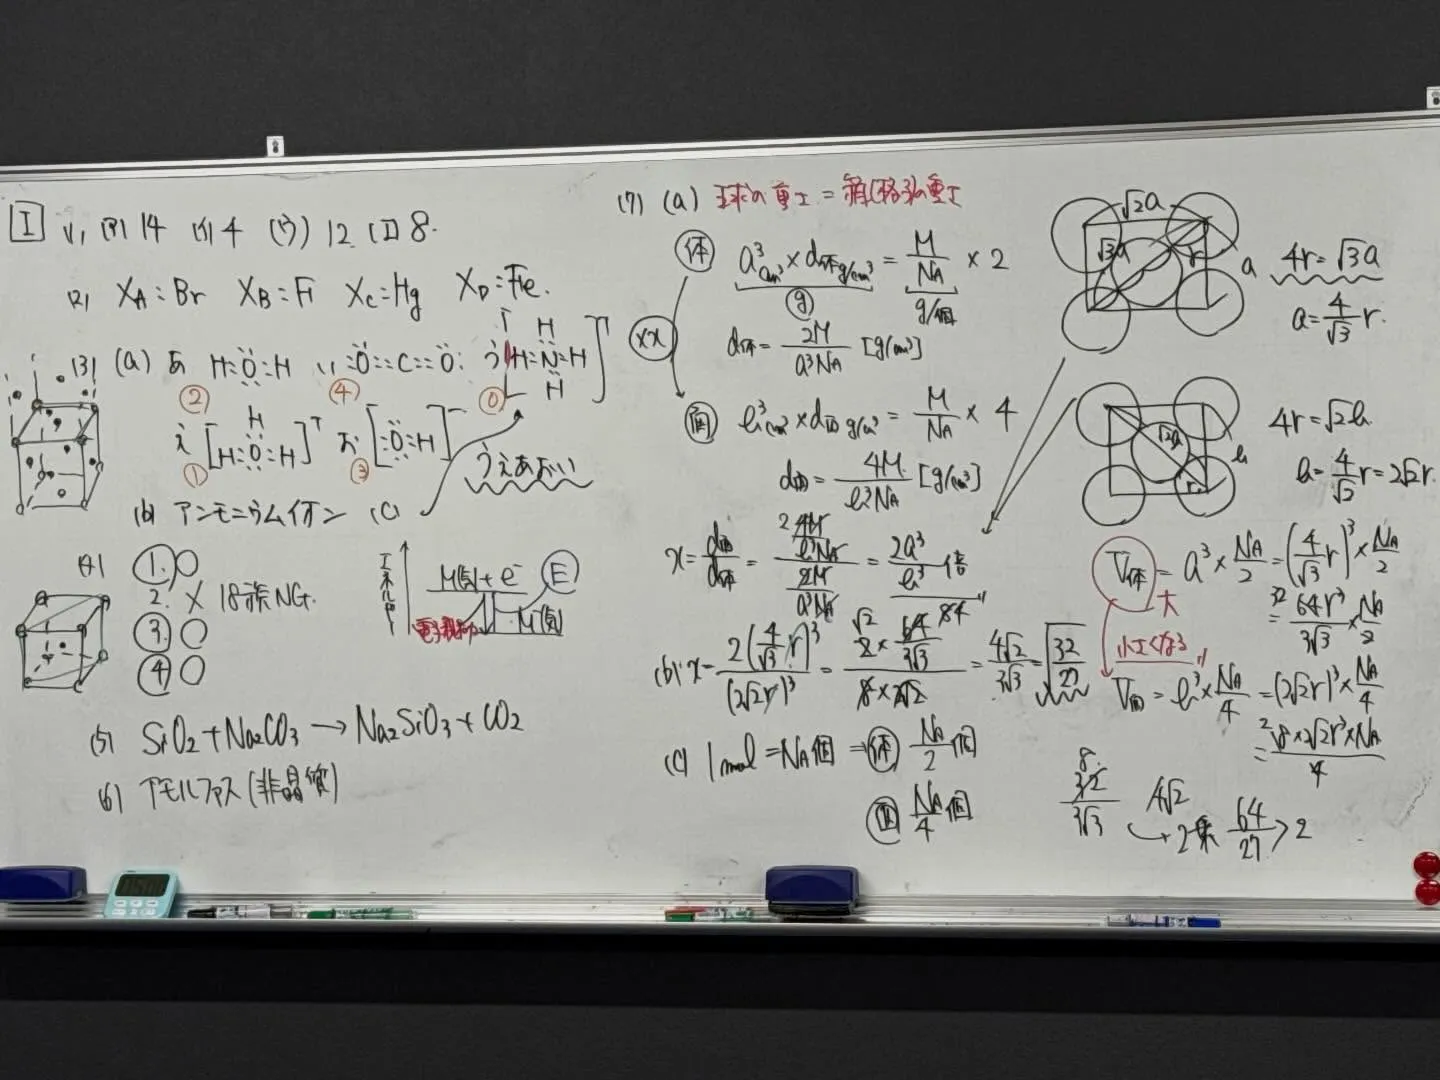 I (1) (ア) 14 (イ) 4 (ウ) 12 (エ) 8.
(2) XA:Br XB:Fr XC:Hg XD:Fe.
(3) (a) あ H:O:H い :O::C::O: う [H:N:H]⁺
H
H
② ④ ⓪
え [H:O:H]⁺ お [:O:H]⁻
H
① ③
うえあおい
(b) アンモニウムイオン (c)
(4) ①. ○
2. × 18族NG.
③. ○
④ ○
エネルギー
M(気)+e⁻ E
電子親和力 M⁻(気)
(5) SiO₂+Na₂CO₃ → Na₂SiO₃+CO₂
(6) アモルファス(非晶質)
(7) (a) 球の重さ=単位格子の重さ
体 a³cm³×d体g/cm³ = M/NA × 2
g g/個
d体= 2M/a³NA [g/cm³]
面 l³cm³×d面g/cm³ = M/NA × 4
d面= 4M/l³NA [g/cm³]
x= d面/d体 = (4M/l³NA)/(2M/a³NA) = 2a³/l³ 倍
(b) x= 2(4/√3 r)³/(2√2r)³ = 4√2/3√3 = √32/27
(c) 1mol=NA個 ⇒ 体 NA/2個
面 NA/4個
√2a
√3a r a
4r=√3a
a=4/√3 r.
√2l
r l
4r=√2l.
l=4/√2 r=2√2r.
V体 = a³×NA/2 = (4/√3 r)³×NA/2
大
= 64r³/3√3 × NA/2
小さくなる
V面 = l³×NA/4 = (2√2r)³×NA/4
= 8×2√2r³×NA/4
32/3√3 4√2
2乗 64/27 > 2